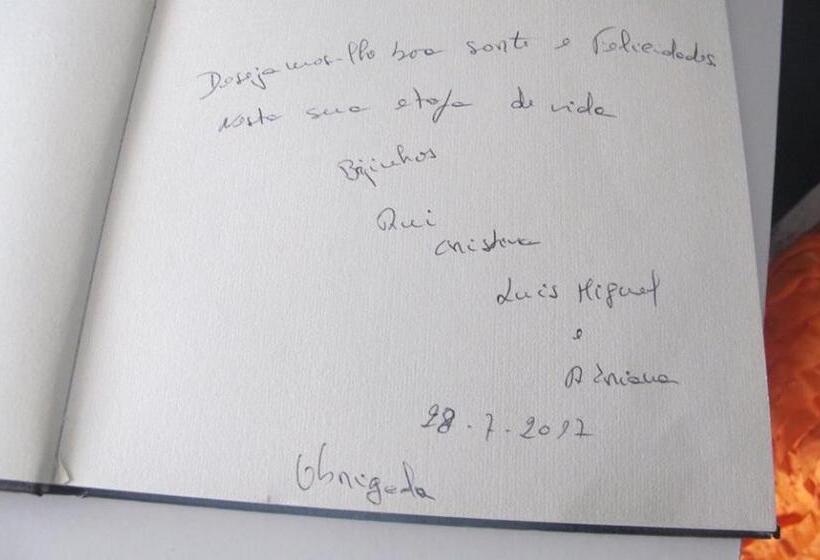 Desejamos-lhe boa sorte e Felicidades
nesta sua etapa de vida
Bijinhos
Rui
Cristina
Luis Miguel
e
Adriana
28.7.2017
Obrigada